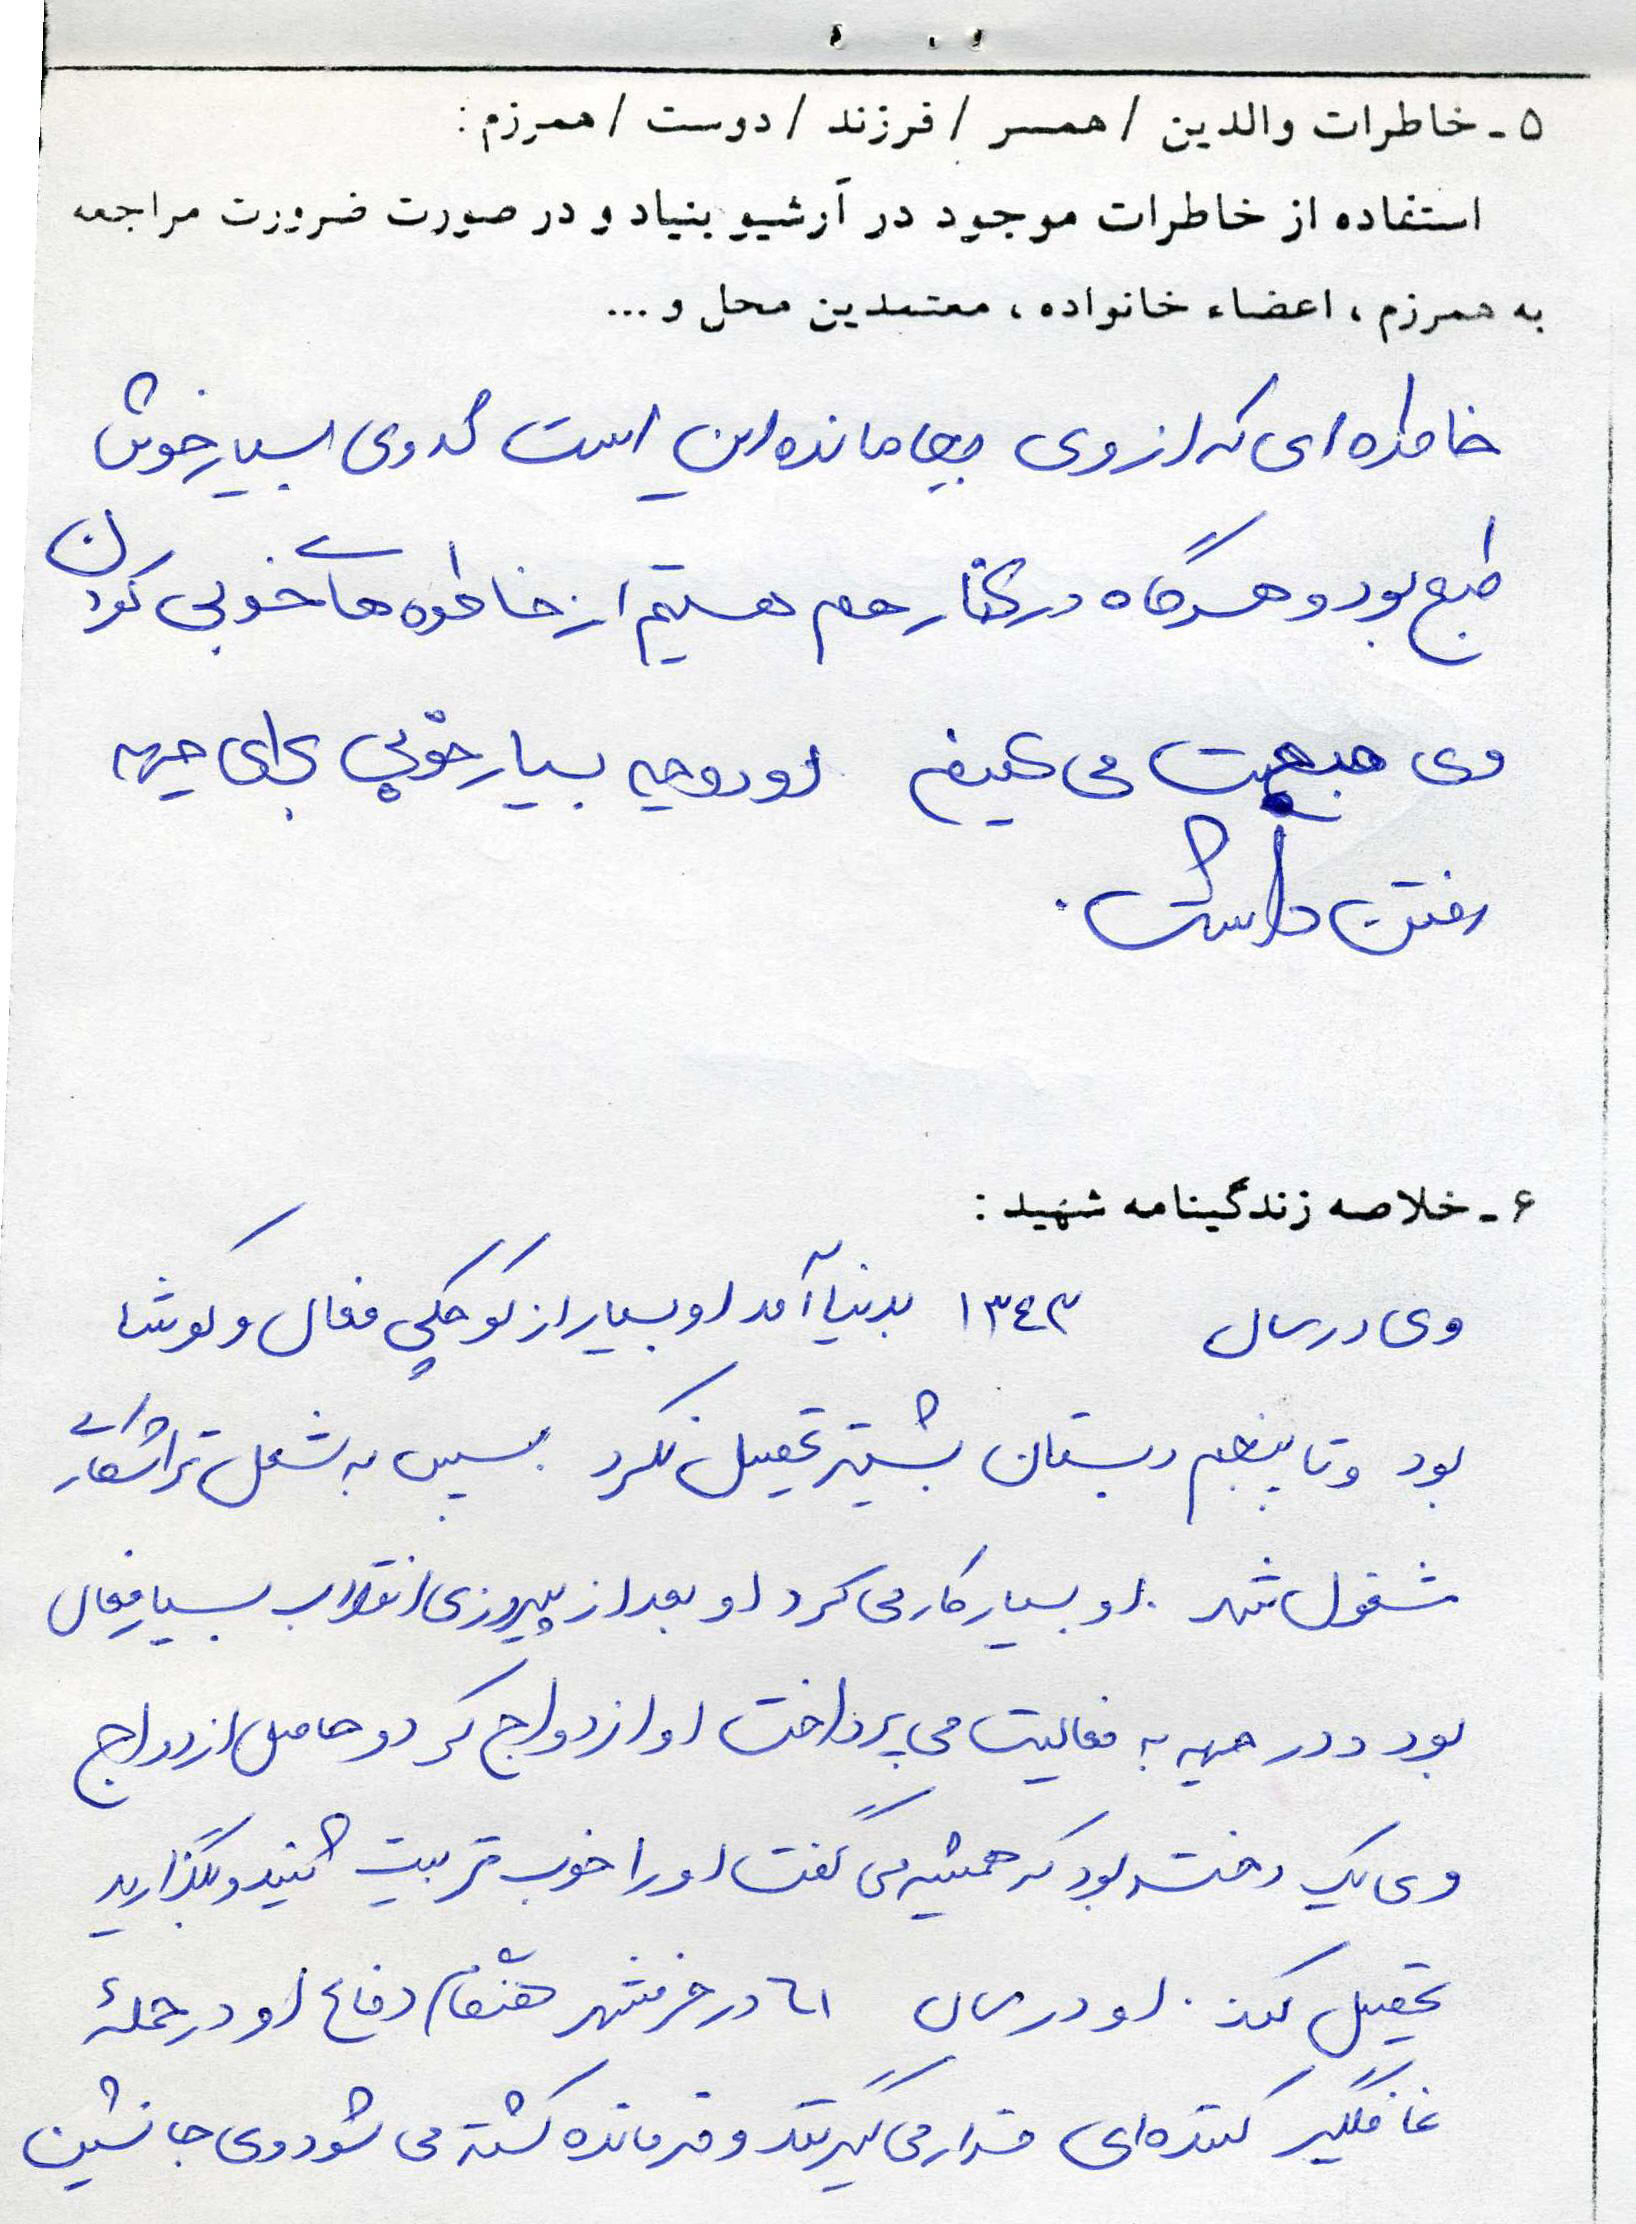 ۵ - خاطرات والدین / همسر / فرزند / دوست / همرزم :
استفاده از خاطرات موجود در آرشیو بنیاد و در صورت ضرورت مراجعه
به همرزم ، اعضاء خانواده ، معتمدین محل و ...
خاطره ای که از وی بجا مانده این است که وی بسیار خوش
طبع بود و هرگاه در کنار هم هستیم از خاطره های خوبی کودکی
وی صحبت می کنیم او روحیه بسیار خوبی برای جبهه
رفتن داشت .
۶ - خلاصه زندگینامه شهید :
وی در سال ۱۳٤۳ بدنیا آمد او بسیار از کوچکی فعال و کوشا
بود و تا پنجم دبستان بیشتر تحصیل نکرد . سپس به شغل تراشکاری
مشغول شد . او بسیار کار می کرد او بعد از پیروزی انقلاب بسیار فعال
بود و در جبهه به فعالیت می پرداخت او ازدواج کرد و حاصل ازدواج
وی یک دختر بود که همیشه می گفت او را خوب تربیت کنید و بگذارید
تحصیل کند . او در سال ٦۱ در خرمشهر هنگام دفاع او در حملهٔ
غافلگیر کننده ای قرار می گیرند و فرمانده کشته می شود وی جانشین